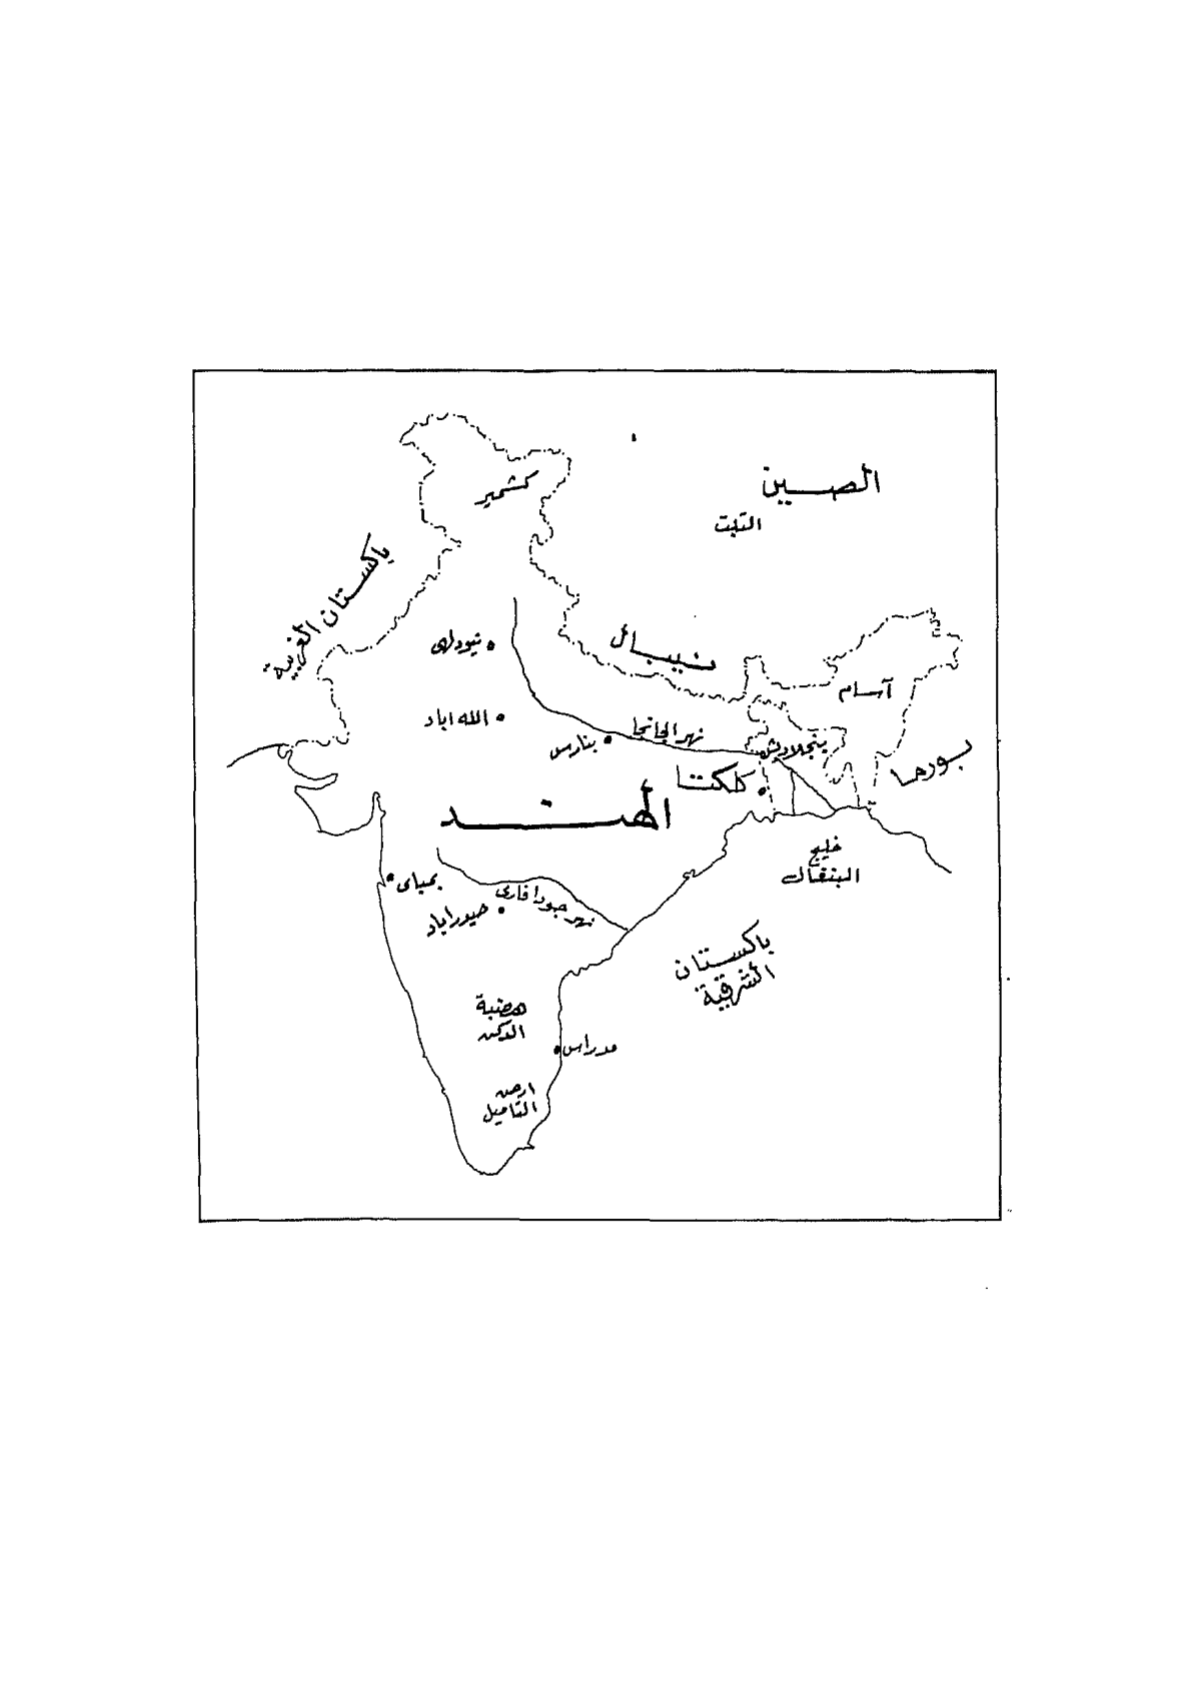 الصين
التبت
كشمير
باكستان الغربية
نيودلهى
نيبال
آسام
الله اباد
نهر الجانجا
بنارس
بنجلاديش
بورما
كلكتا
الهند
خليج
البنغال
بمباى
نهر جودافارى
حيدراباد
باكستان
الشرقية
هضبة
الدكن
مدراس
ارض
التاميل